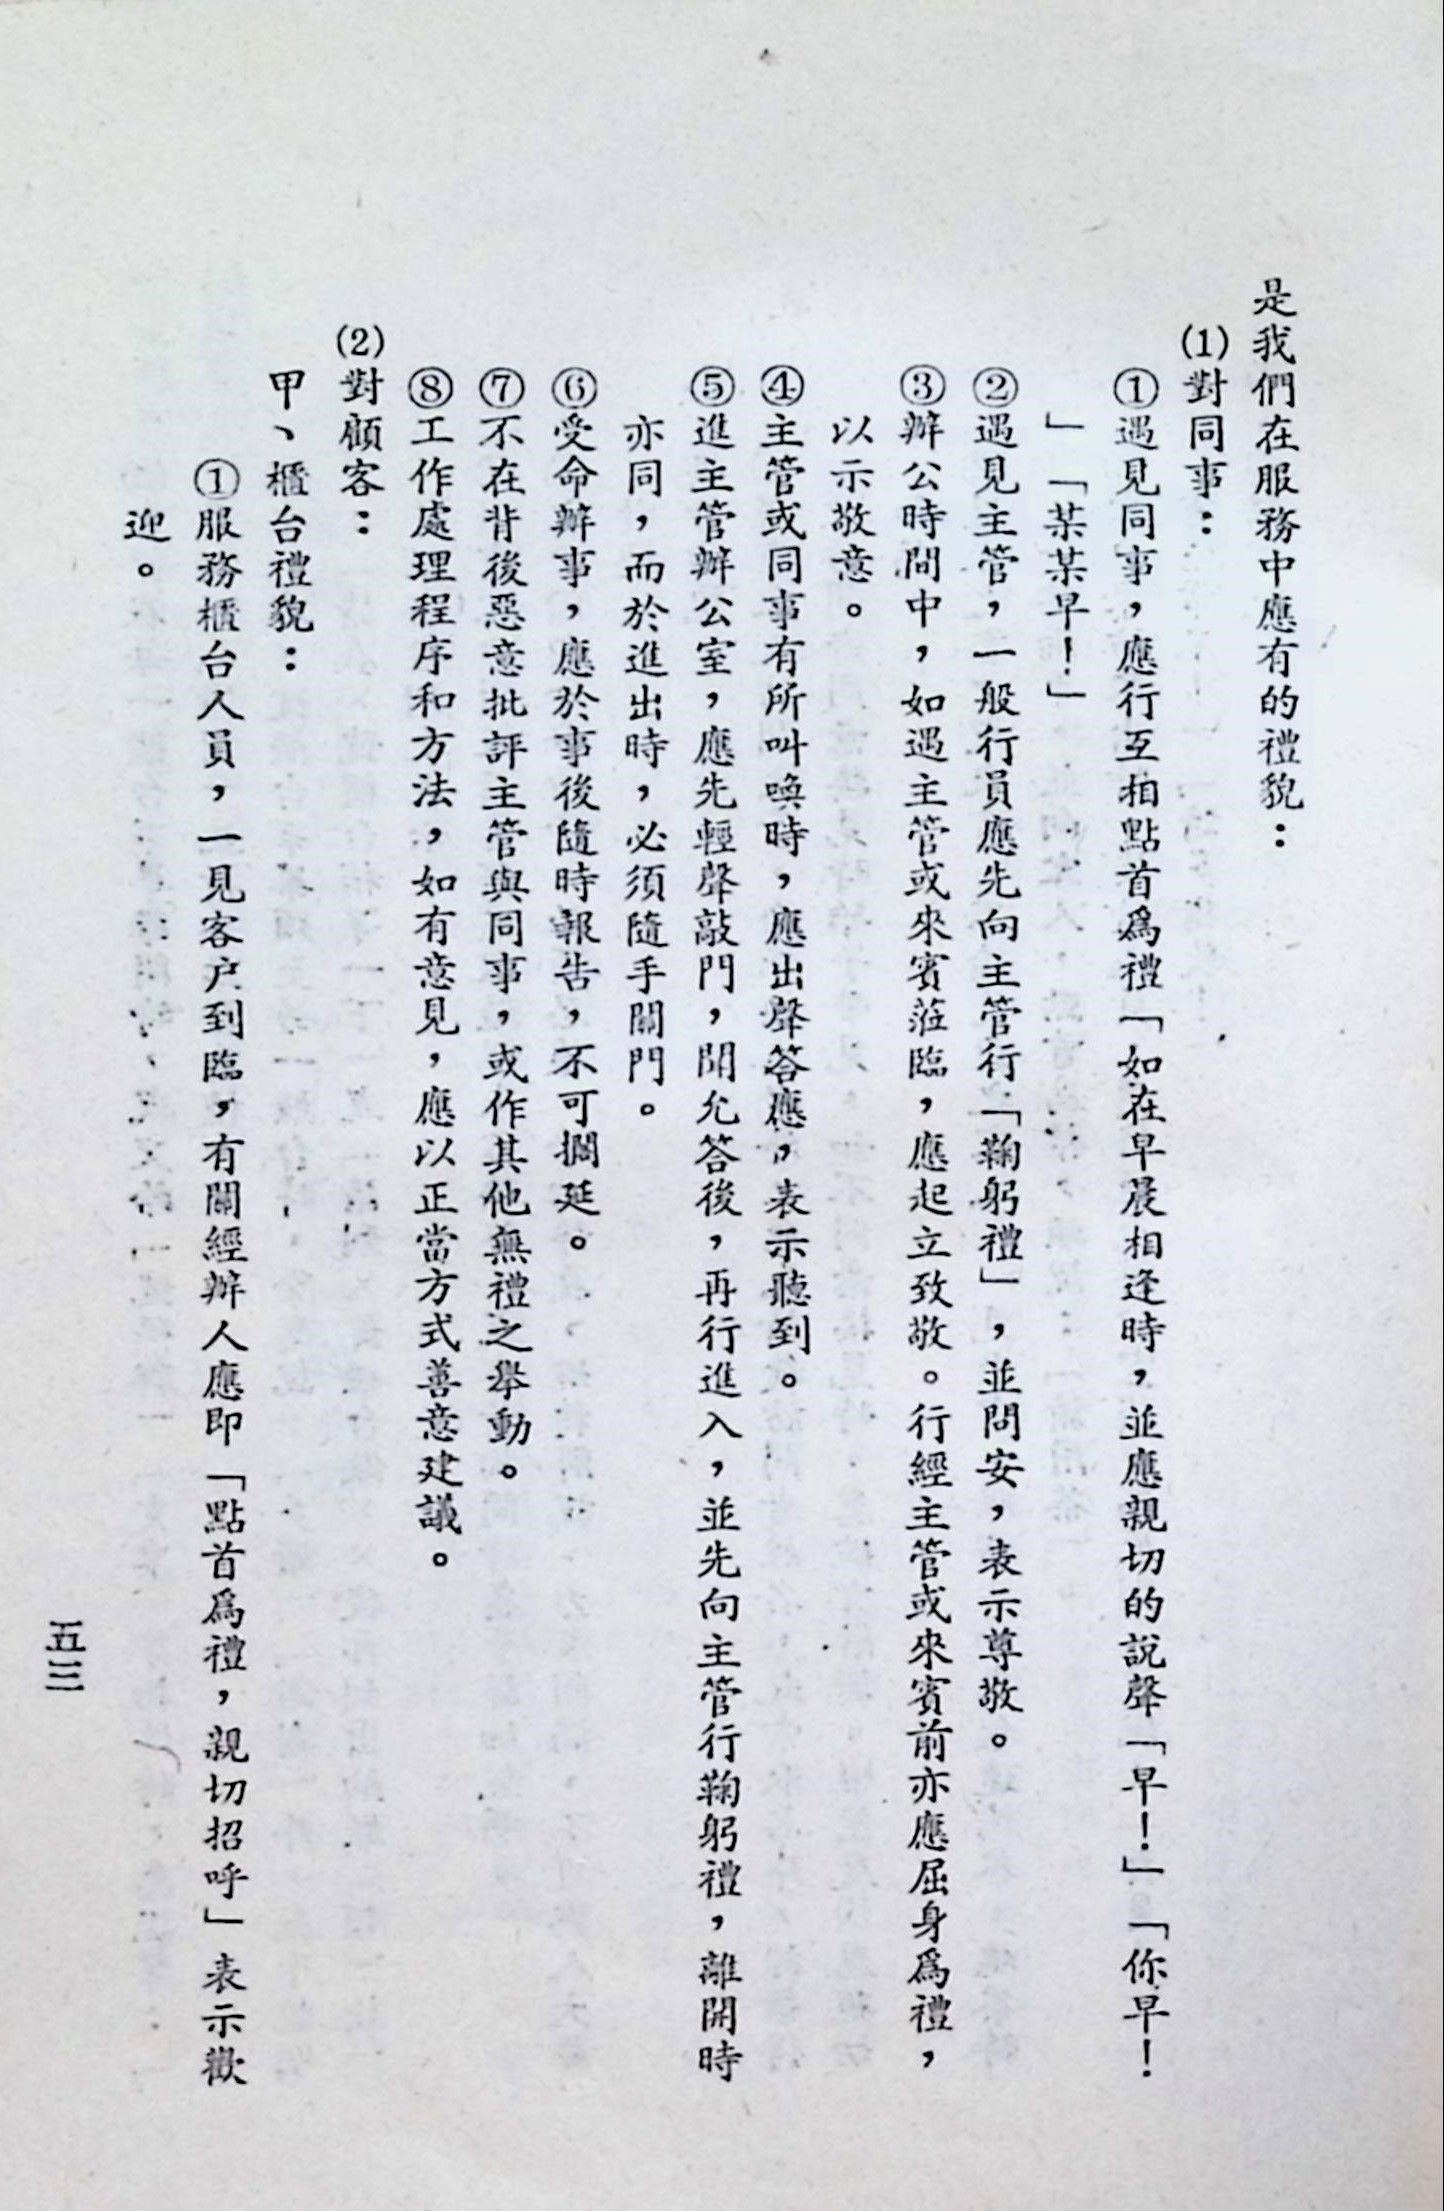 是我們在服務中應有的禮貌：
(1)對同事：
①遇見同事，應行互相點首爲禮「如在早晨相逢時，並應親切的說聲「早！」「你早！
」「某某早！」
②遇見主管，一般行員應先向主管行「鞠躬禮」，並問安，表示尊敬。
③辦公時間中，如遇主管或來賓蒞臨，應起立致敬。行經主管或來賓前亦應屈身爲禮，
以示敬意。
④主管或同事有所叫喚時，應出聲答應，表示聽到。
⑤進主管辦公室，應先輕聲敲門，聞允答後，再行進入，並先向主管行鞠躬禮，離開時
亦同，而於進出時，必須隨手關門。
⑥受命辦事，應於事後隨時報告，不可擱延。
⑦不在背後惡意批評主管與同事，或作其他無禮之舉動。
⑧工作處理程序和方法，如有意見，應以正當方式善意建議。
(2)對顧客：
甲、櫃台禮貌：
①服務櫃台人員，一見客户到臨，有關經辦人應即「點首爲禮，親切招呼」表示歡
迎。
五三